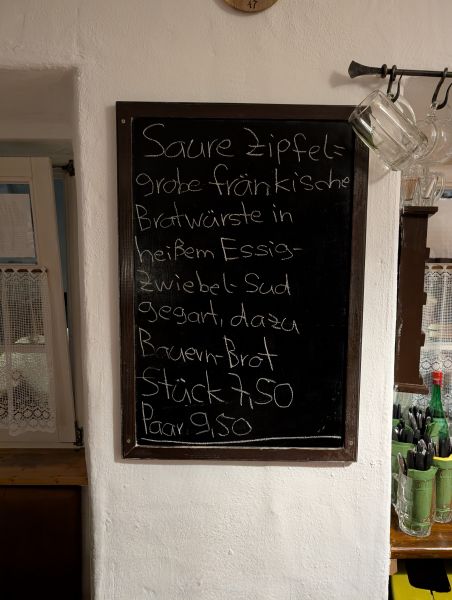 47
Saure Zipfel=
grobe fränkische
Bratwürste in
heißem Essig-
zwiebel-Sud
gegart, dazu
Bauern-Brot
Stück 7,50
Paar 9,50